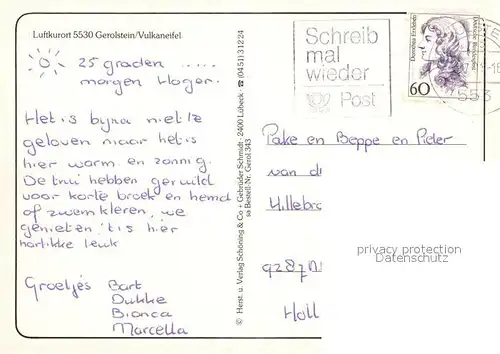 Luftkurort 5530 Gerolstein/Vulkaneifel
25 graden .....
morgen Hoger.
Het is bijna niet te
geloven maar het is
hier warm en zonnig.
De trui hebben geruild
voor korte broek en hemd
of zwemkleren, we
genieten 't is hier
hartikke leuk
Groetjes Bart
Dukke
Bianca
Marcella
© Herst. u. Verlag Schöning & Co + Gebrüder Schmidt · 2400 Lübeck · ☎ (0451) 31224
Bestell-Nr. Gerol 343
Schreib
mal
wieder
Post
Dorothea Erxleben
Deutsche Bundespost
60
553
Pake en Beppe en Pieter
van d
Hillebr
9287
Holl
privacy protection
Datenschutz